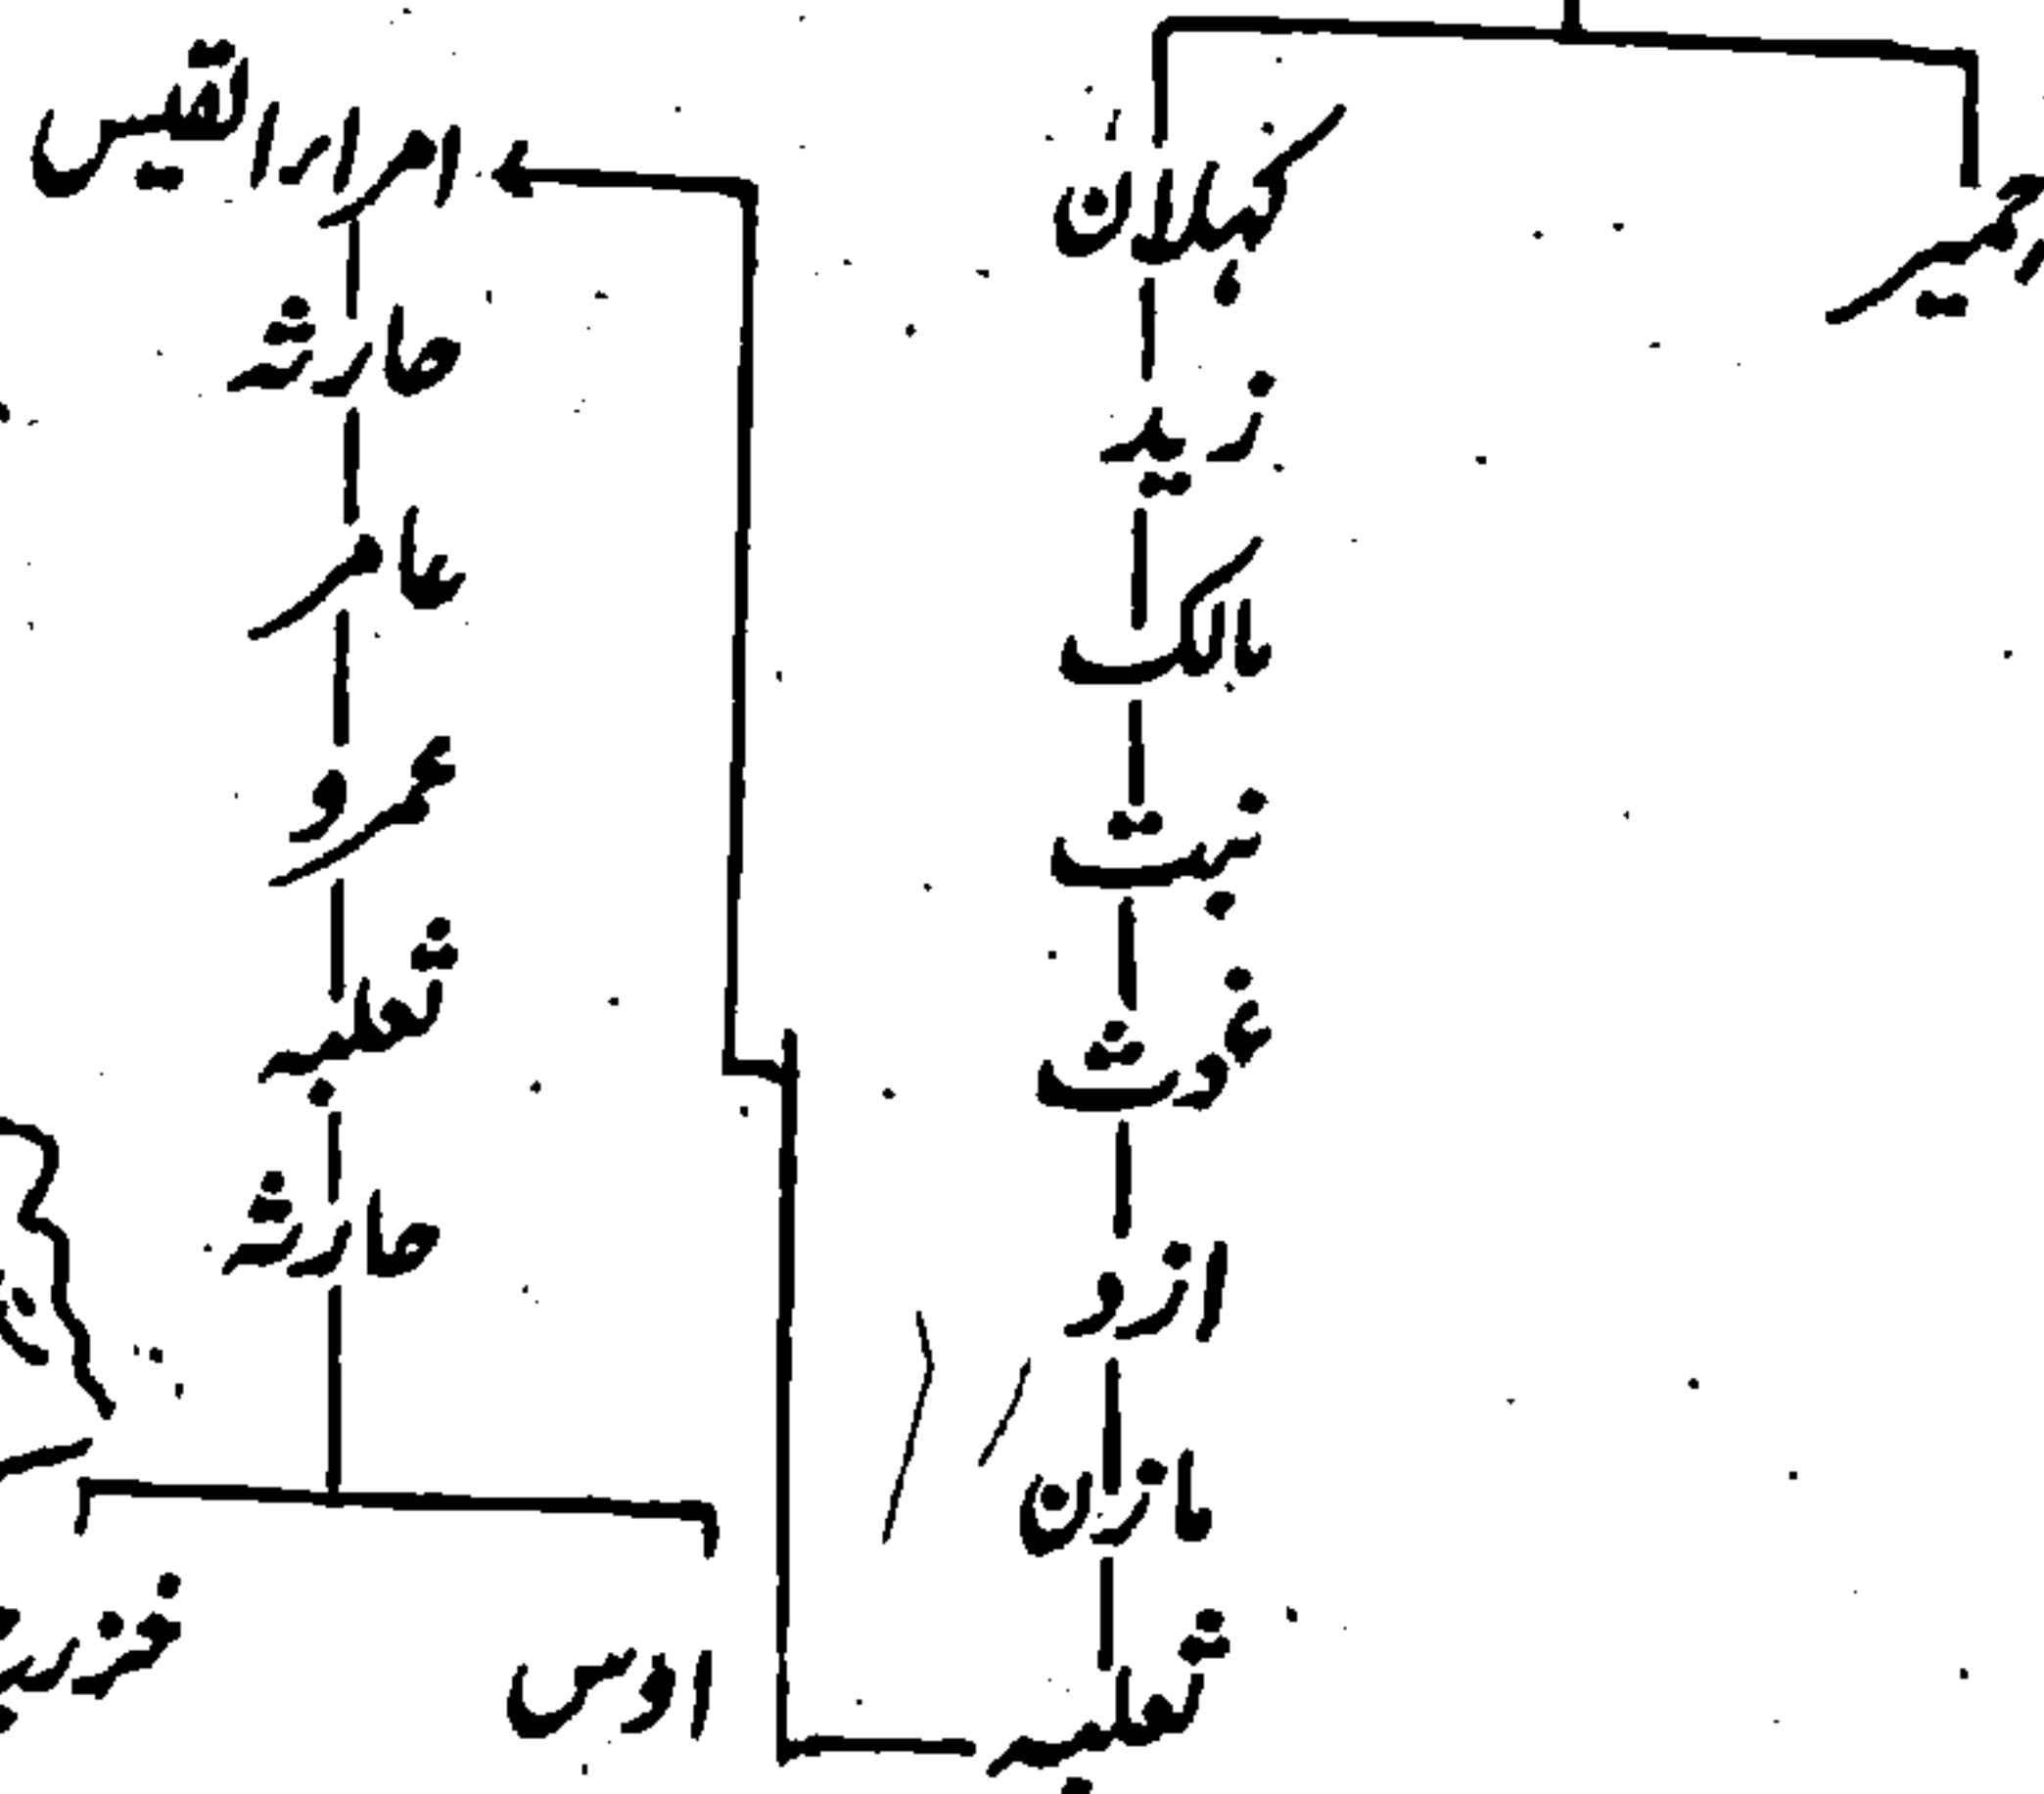 کہلان
حمیر
زید
مالک
نبت
غوث
ازو
مازن
ثعلبہ
امراء القیس
حارثہ
عامر
عمرو
ثعلبہ
حارثہ
اوس